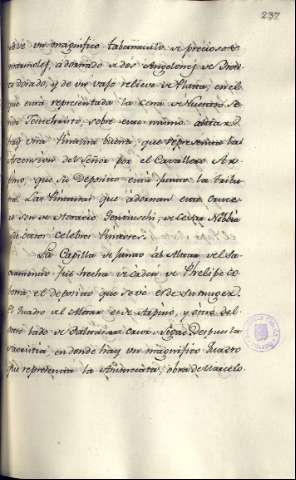 237
save un magnifico tabernaculo de preciosos
marmoles, adornado de dos Angelones de Bronce
dorado, y de un vaso relieve de Plata, en el
que está representada la Cena de Nuestro Se
ñor Jesuchristo, sobre este mismo altar
hay una Pintura buena, que representa la
Ascension del Señor por el Cavallero Ar
pino, que su Deposito está junto la tribu
na. Las Pinturas que adornan este Cruce
ro son de Horacio Gentileschi, de Cesar Nebbia
y otros celebres Pintores.
La Capilla de junto al Altar del Sa
cramento fué hecha de orden de Phelipe
el deposito que se ve es de su muger.
El quadro del Altar es de Arpino, y el del
otro lado de Baldasara Croce. Sigue despues la
sacristia, en donde hay un magnifico Quadro
que representa la Anunciata, obra de Marcelo